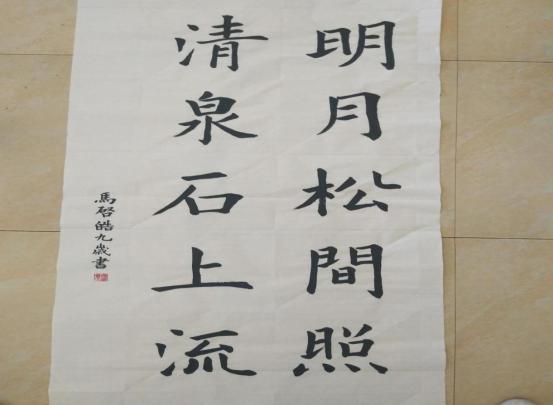 明月松間照
清泉石上流
馬啓皓九歲書